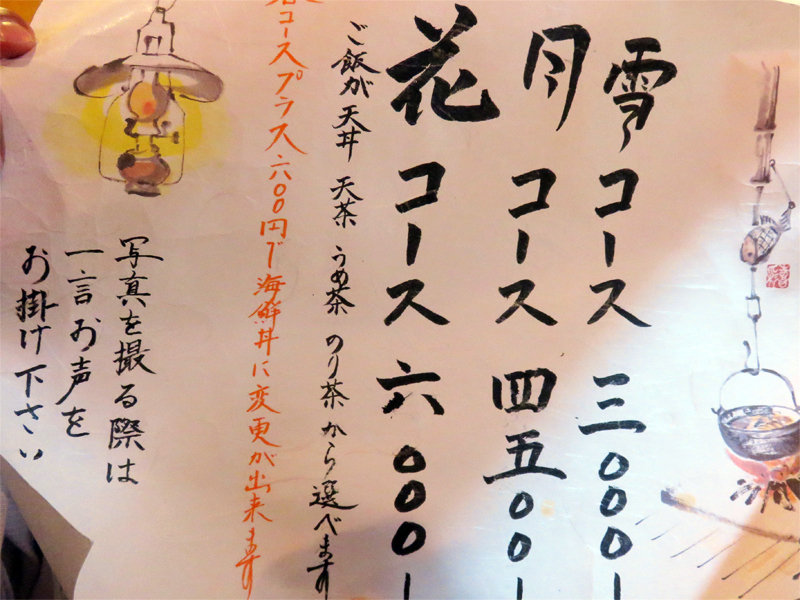 雪コース 三〇〇〇ー
月コース 四五〇〇ー
花コース 六〇〇〇ー
ご飯が 天丼 天茶 うめ茶 のり茶 から選べます
コースプラス六〇〇円で海鮮丼に変更が出来ます
写真を撮る際は
一言お声を
お掛け下さい